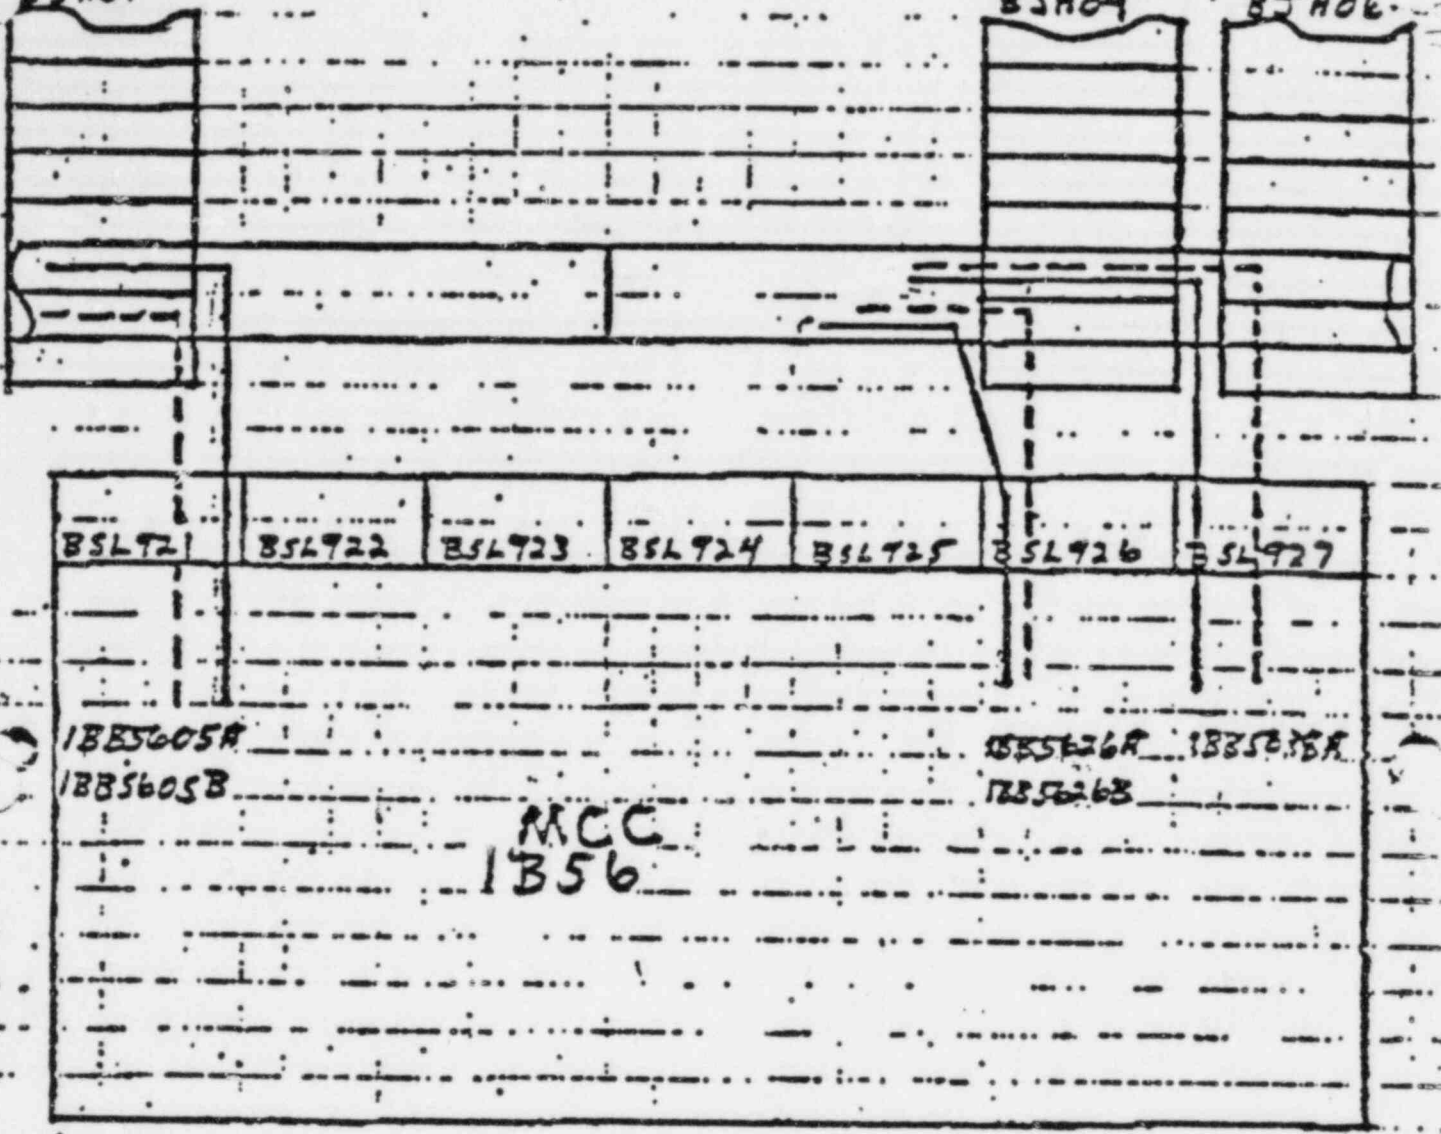 BJH04 BJH06
BSL921 BSL922 BSL923 BSL924 BSL925 BSL926 BSL927
1BB5605A 1BB5626A
1BB5605B 1BB5626B
MCC
1B56